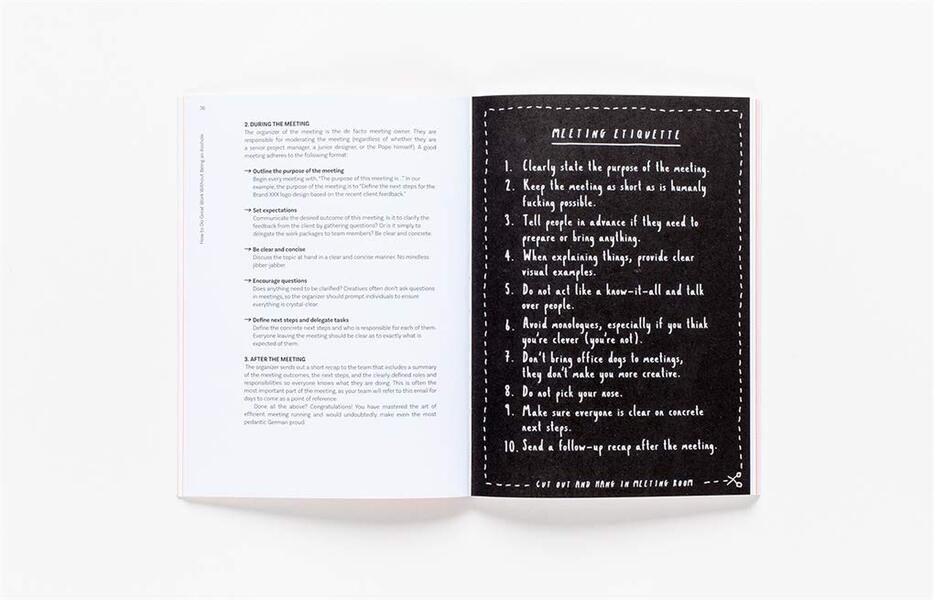 36
How to Do Great Work Without Being an Asshole
2. DURING THE MEETING
The organizer of the meeting is the de facto meeting owner. They are
responsible for moderating the meeting (regardless of whether they are
a senior project manager, a junior designer, or the Pope himself). A good
meeting adheres to the following format:
→ Outline the purpose of the meeting
Begin every meeting with, "The purpose of this meeting is ..." In our
example, the purpose of the meeting is to "Define the next steps for the
Brand XXX logo design based on the recent client feedback."
→ Set expectations
Communicate the desired outcome of this meeting. Is it to clarify the
feedback from the client by gathering questions? Or is it simply to
delegate the work packages to team members? Be clear and concrete.
→ Be clear and concise
Discuss the topic at hand in a clear and concise manner. No mindless
jibber-jabber.
→ Encourage questions
Does anything need to be clarified? Creatives often don't ask questions
in meetings, so the organizer should prompt individuals to ensure
everything is crystal-clear.
→ Define next steps and delegate tasks
Define the concrete next steps and who is responsible for each of them.
Everyone leaving the meeting should be clear as to exactly what is
expected of them.
3. AFTER THE MEETING
The organizer sends out a short recap to the team that includes a summary
of the meeting outcomes, the next steps, and the clearly defined roles and
responsibilities so everyone knows what they are doing. This is often the
most important part of the meeting, as your team will refer to this email for
days to come as a point of reference.
Done all the above? Congratulations! You have mastered the art of
efficient meeting running and would undoubtedly make even the most
pedantic German proud.
MEETING ETIQUETTE
1. Clearly state the purpose of the meeting.
2. Keep the meeting as short as is humanly
fucking possible.
3. Tell people in advance if they need to
prepare or bring anything.
4. When explaining things, provide clear
visual examples.
5. Do not act like a know-it-all and talk
over people.
6. Avoid monologues, especially if you think
you're clever (you're not).
7. Don't bring office dogs to meetings,
they don't make you more creative.
8. Do not pick your nose.
9. Make sure everyone is clear on concrete
next steps.
10. Send a follow-up recap after the meeting.
CUT OUT AND HANG IN MEETING ROOM